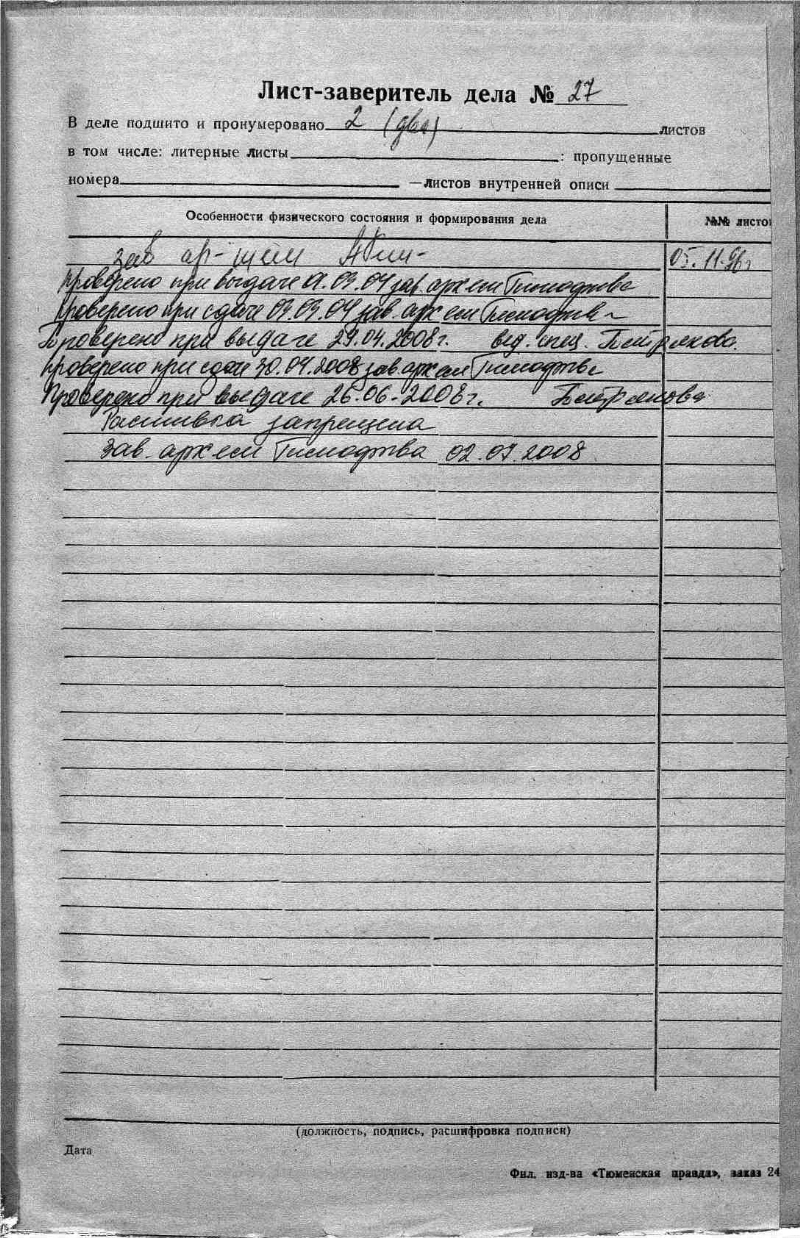 Лист-заверитель дела № 27
В деле подшито и пронумеровано 2 (два) листов
в том числе: литерные листы : пропущенные
номера —листов внутренней описи
Особенности физического состояния и формирования дела №№ листо
зав 05.11.96г
проверено при выдаче 01.03.04 зав. архем Тимофеева
проверено при сдаче 03.03.04 зав. архем Тимофеева
Проверено при выдаче 29.04.2008г. вед. спец.
проверено при сдаче 30.04.2008 зав. архем Тимофеева
Проверено при выдаче 26.06-2008г.
Расшивка запрещена
Зав. архем Тимофеева 02.07.2008
(должность, подпись, расшифровка подписи)
Дата
Фил. изд-ва «Тюменская правда», заказ 24